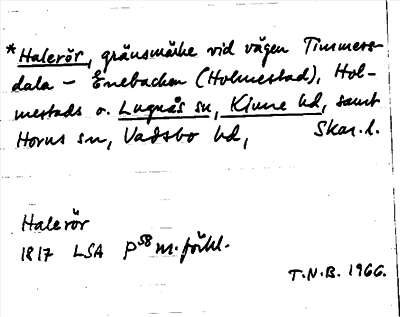 *Halerör, gränsmärke vid vägen Timmers-
dala – Enebacken (Holmestad), Hol-
mestads o. Lugnås sn, Kinne hd, samt
Horns sn, Vadsbo hd, Skar. l.
Halerör
1817 LSA P58 m. förkl.
T.N.B. 1966.